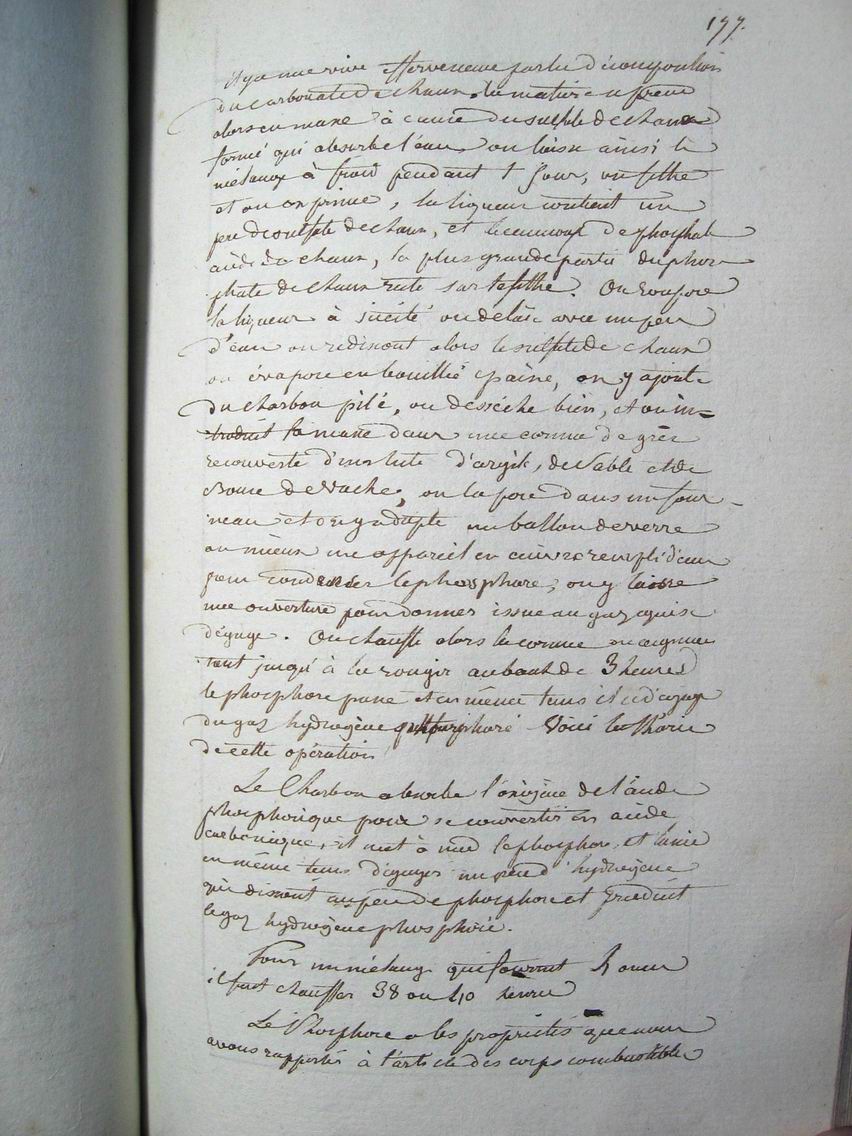 177.
il y a une vive effervescence par la décomposition
du carbonate de chaux. la matière se prend
alors en masse à cause du sulfate de chaux
formé qui absorbe l'eau, on laisse ainsi le
mélange à froid pendant 1 jour, on filtre
et on exprime, la liqueur contient un
peu de sulfate de chaux, et beaucoup de phosphate
acide de chaux, la plus grande partie du phos
phate de chaux reste sur le filtre. On évapore
la liqueur à siccité on délaie avec un peu
d'eau on redissout alors le sulfate de chaux
on évapore en bouillie épaisse, on y ajoute
du charbon pilé, on dessèche bien, et on in-
troduit la masse dans une cornue de grès
recouverte d'un lute d'argile, de sable et de
Bouse de vache, on la pose dans un four-
neau et on y adapte un ballon de verre
ou mieux un appareil en cuivre rempli d'eau
pour condenser le phosphore, on y laisse
une ouverture pour donner issue au gaz qui se
dégage. On chauffe alors la cornue en augmen
tant jusqu'à la rougir au bout de 3 heures
le phosphore passe et en même tems il se dégage
du gaz hydrogène phosphoré Voici la théorie
de cette opération
Le Charbon absorbe l'oxigène de l'acide
phosphorique pour se convertir en acide
carbonique, il met à nud le phosphore, et
en même tems dégage un peu d'hydrogène
qui dissout un peu de phosphore et produit
le gaz hydrogène phosphoré.
Pour un mélange qui fournit
il faut chauffer 38 ou 40 heures
Le Phosphore a les propriétés que nous
avons rapportés à l'article des corps combustibles